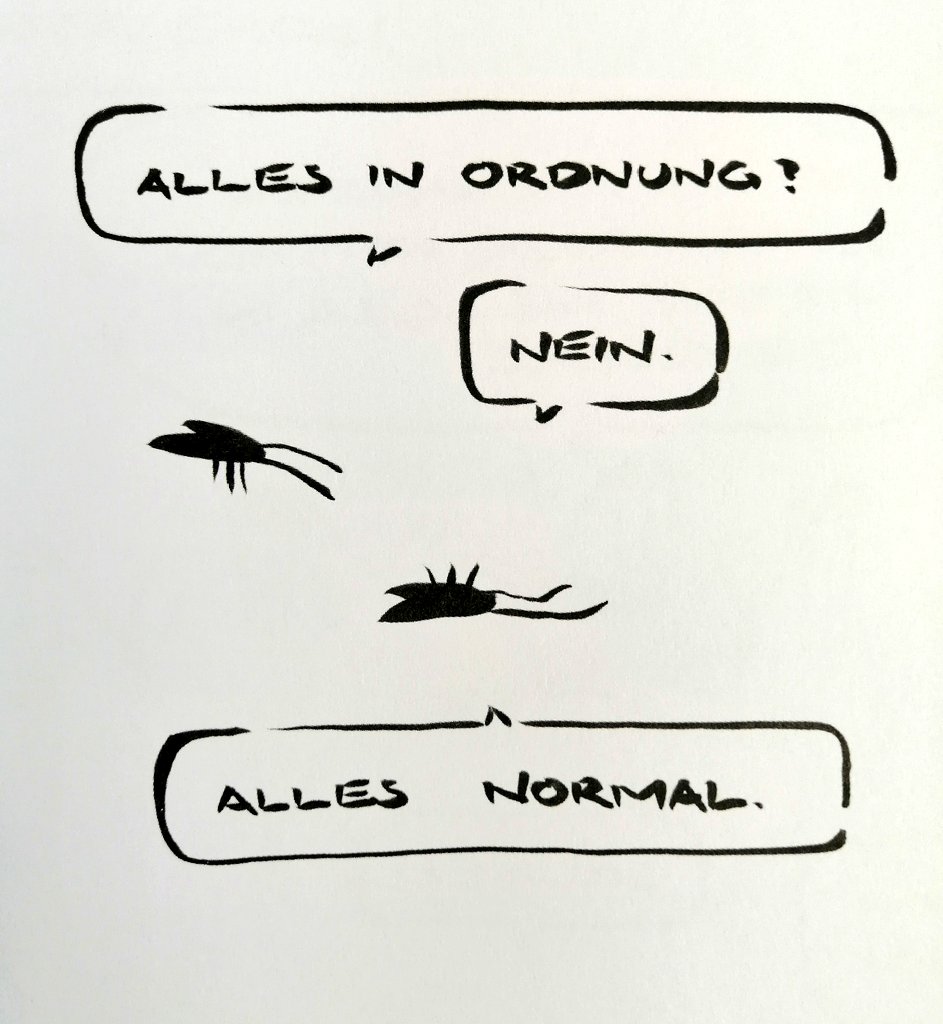 ALLES IN ORDNUNG?
NEIN.
ALLES NORMAL.